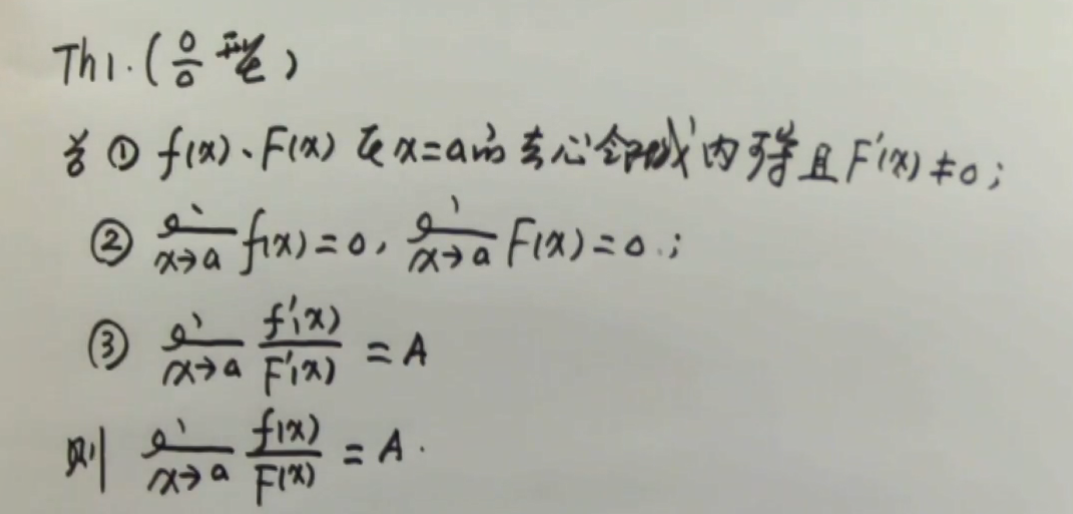 Th1.(0/0型)
若 ① f(x)、F(x) 在 x=a的去心邻域内可导且 F'(x)≠0;
② lim x→a f(x)=0, lim x→a F(x)=0.;
③ lim x→a f'(x)/F'(x) = A
则 lim x→a f(x)/F(x) = A.